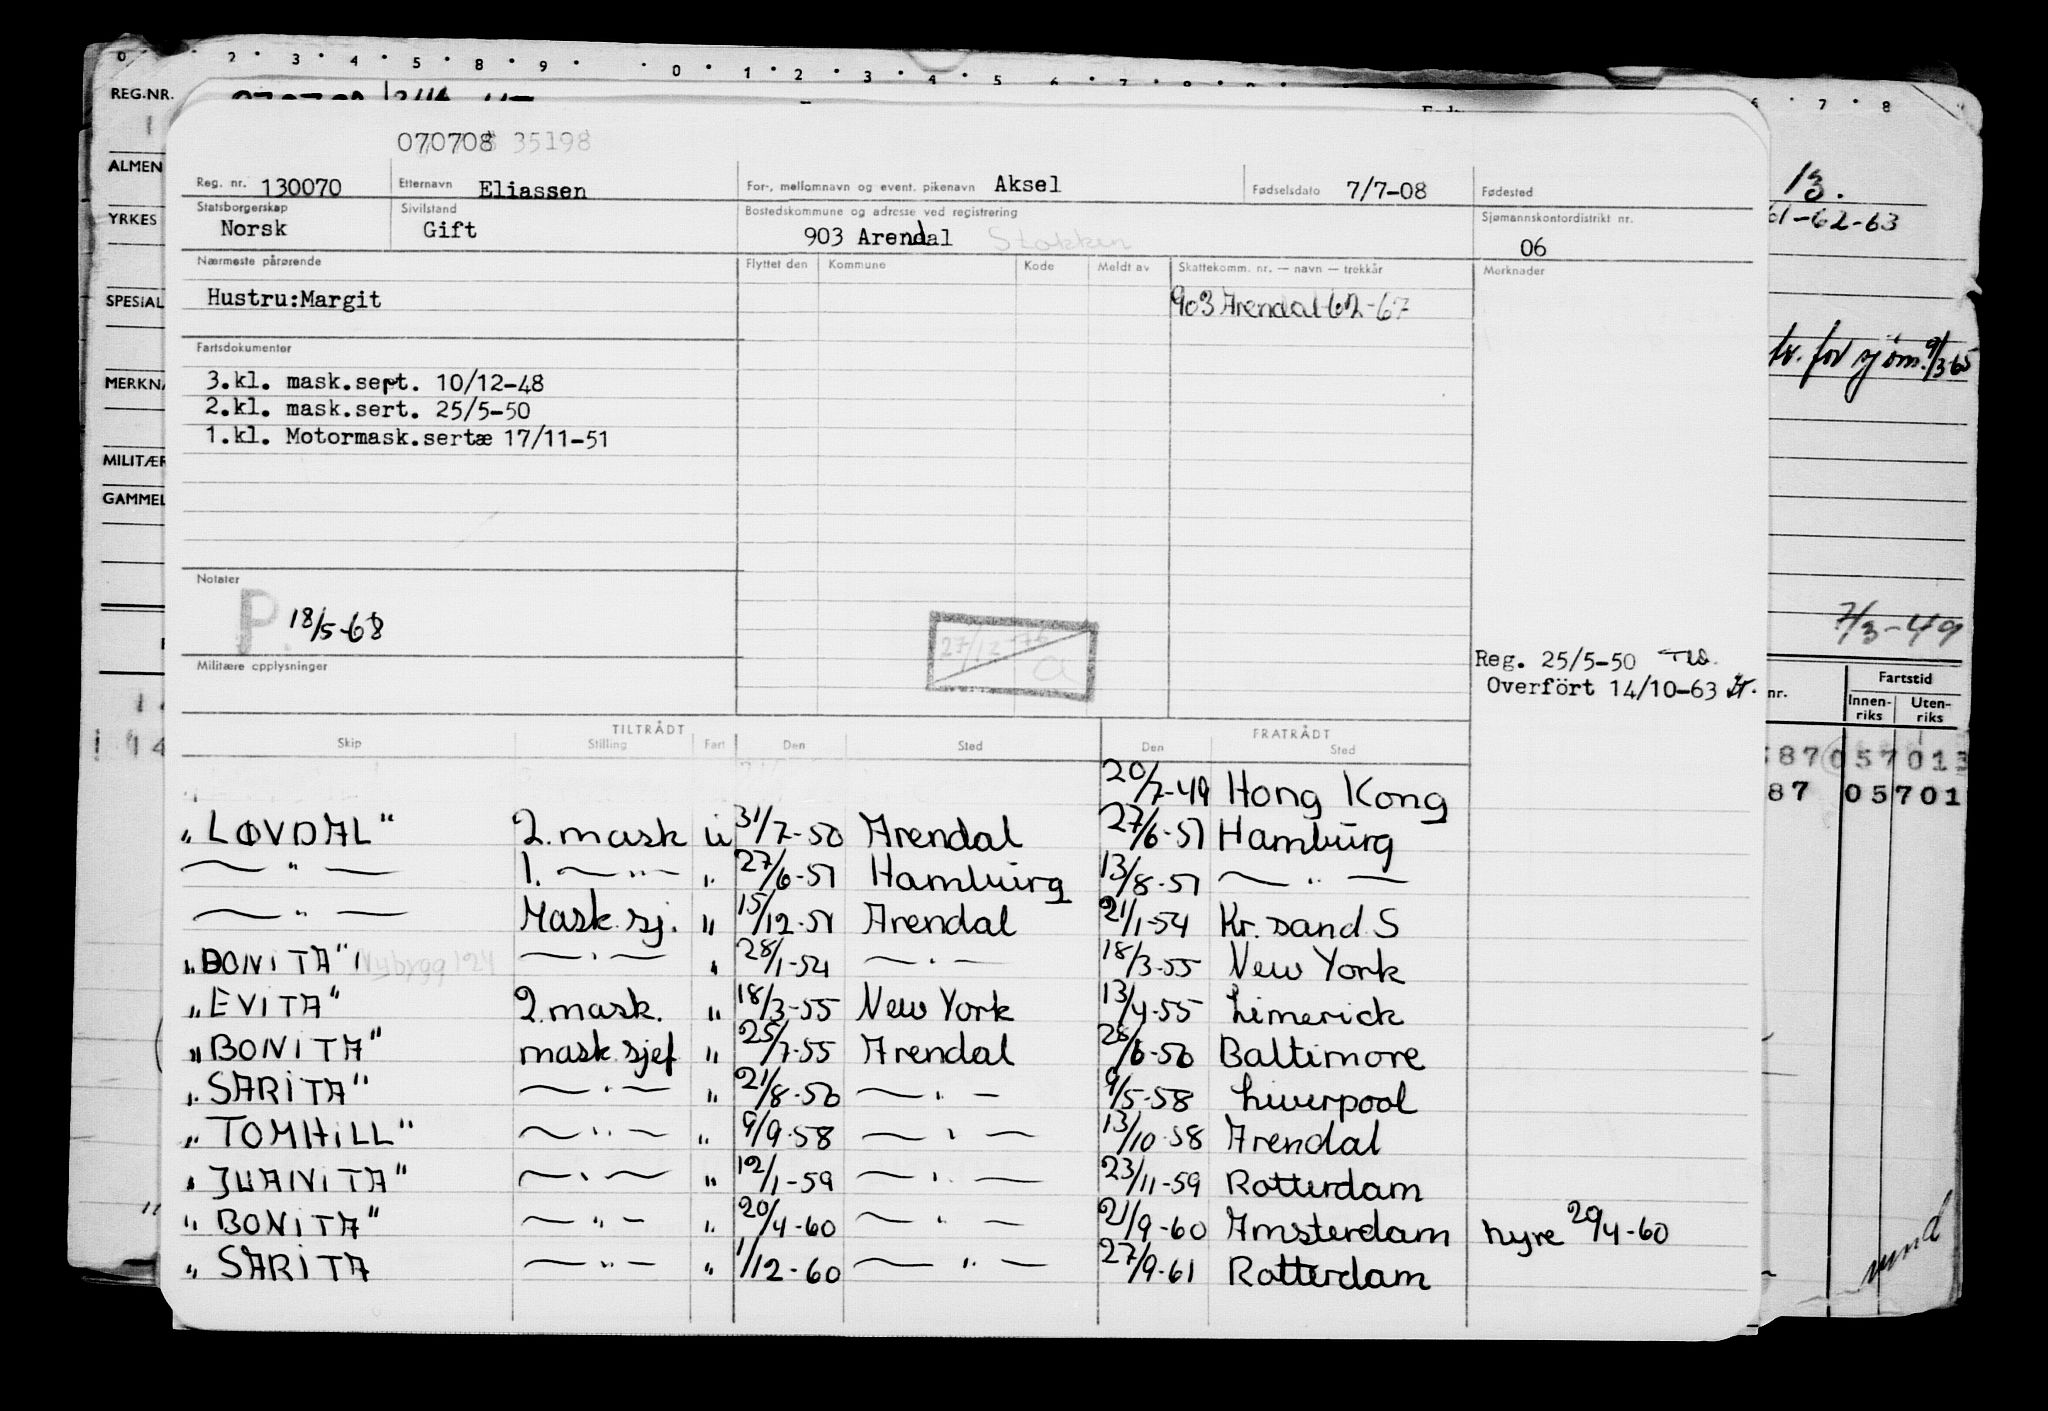 0 2 3 4 5 8 9 0 1 2 3 4 5 6 7 8 9 7 8
REG.NR.
ALMEN
YRKES
SPESIAL
MERKNA
MILITÆR
GAMMEL
13.
61-62-63
for sjøm. 9/3 65
7/3-49
nr. Fartstid
Innen-riks Uten-riks
87 057 013
87 05701
070708 35198
Reg. nr. 130070 Etternavn Eliassen For-, mellomnavn og event. pikenavn Aksel Fødselsdato 7/7-08 Fødested
Statsborgerskap Norsk Sivilstand Gift Bostedskommune og adresse ved registrering 903 Arendal Stokken Sjømannskontordistrikt nr. 06
Nærmeste pårørende Flyttet den Kommune Kode Meldt av Skattekomm. nr. — navn — trekkår Merknader
Hustru:Margit 903 Arendal 62-67
Fartsdokumenter
3.kl. mask.sept. 10/12-48
2.kl. mask.sert. 25/5-50
1.kl. Motormask.sertæ 17/11-51
Notater
P. 18/5-68
27/12-76 a
Militære opplysninger
Reg. 25/5-50
Overfört 14/10-63
TILTRÅDT FRATRÅDT
Skip Stilling Fart Den Sted Den Sted
20/7-49 Hong Kong
„LØVDAL" 2. mask u 31/7-50 Arendal 27/6-51 Hamburg
— " — 1. — " — " 27/6-51 Hamburg 13/8-51 — " —
— " — Mask.sj. " 15/12-51 Arendal 21/1-54 Kr.sand S
„BONITA" Nybygg 124 — " — " 28/1-54 — " — 18/3-55 New York
„EVITA" 2.mask. " 18/3-55 New York 13/4-55 Limerick
„BONITA" mask.sjef " 25/7-55 Arendal 28/6-56 Baltimore
„SARITA" — " — " 21/8-56 — " — 9/5-58 Liverpool
„TOMHILL" — " — " 9/9-58 — " — 13/10-58 Arendal
„JUANITA" — " — " 12/1-59 — " — 23/11-59 Rotterdam
„BONITA" — " — " 20/4-60 — " — 21/9-60 Amsterdam hyre 20/4-60
„SARITA — " — " 1/12-60 — " — 27/9-61 Rotterdam